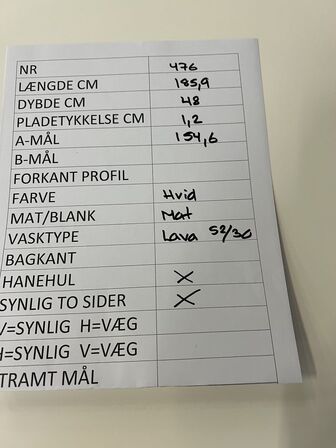 NR 476
LÆNGDE CM 185,9
DYBDE CM 48
PLADETYKKELSE CM 1,2
A-MÅL 154,6
B-MÅL
FORKANT PROFIL
FARVE Hvid
MAT/BLANK Mat
VASKTYPE Lava 52/30
BAGKANT
HANEHUL X
SYNLIG TO SIDER X
V=SYNLIG H=VÆG
H=SYNLIG V=VÆG
STRAMT MÅL